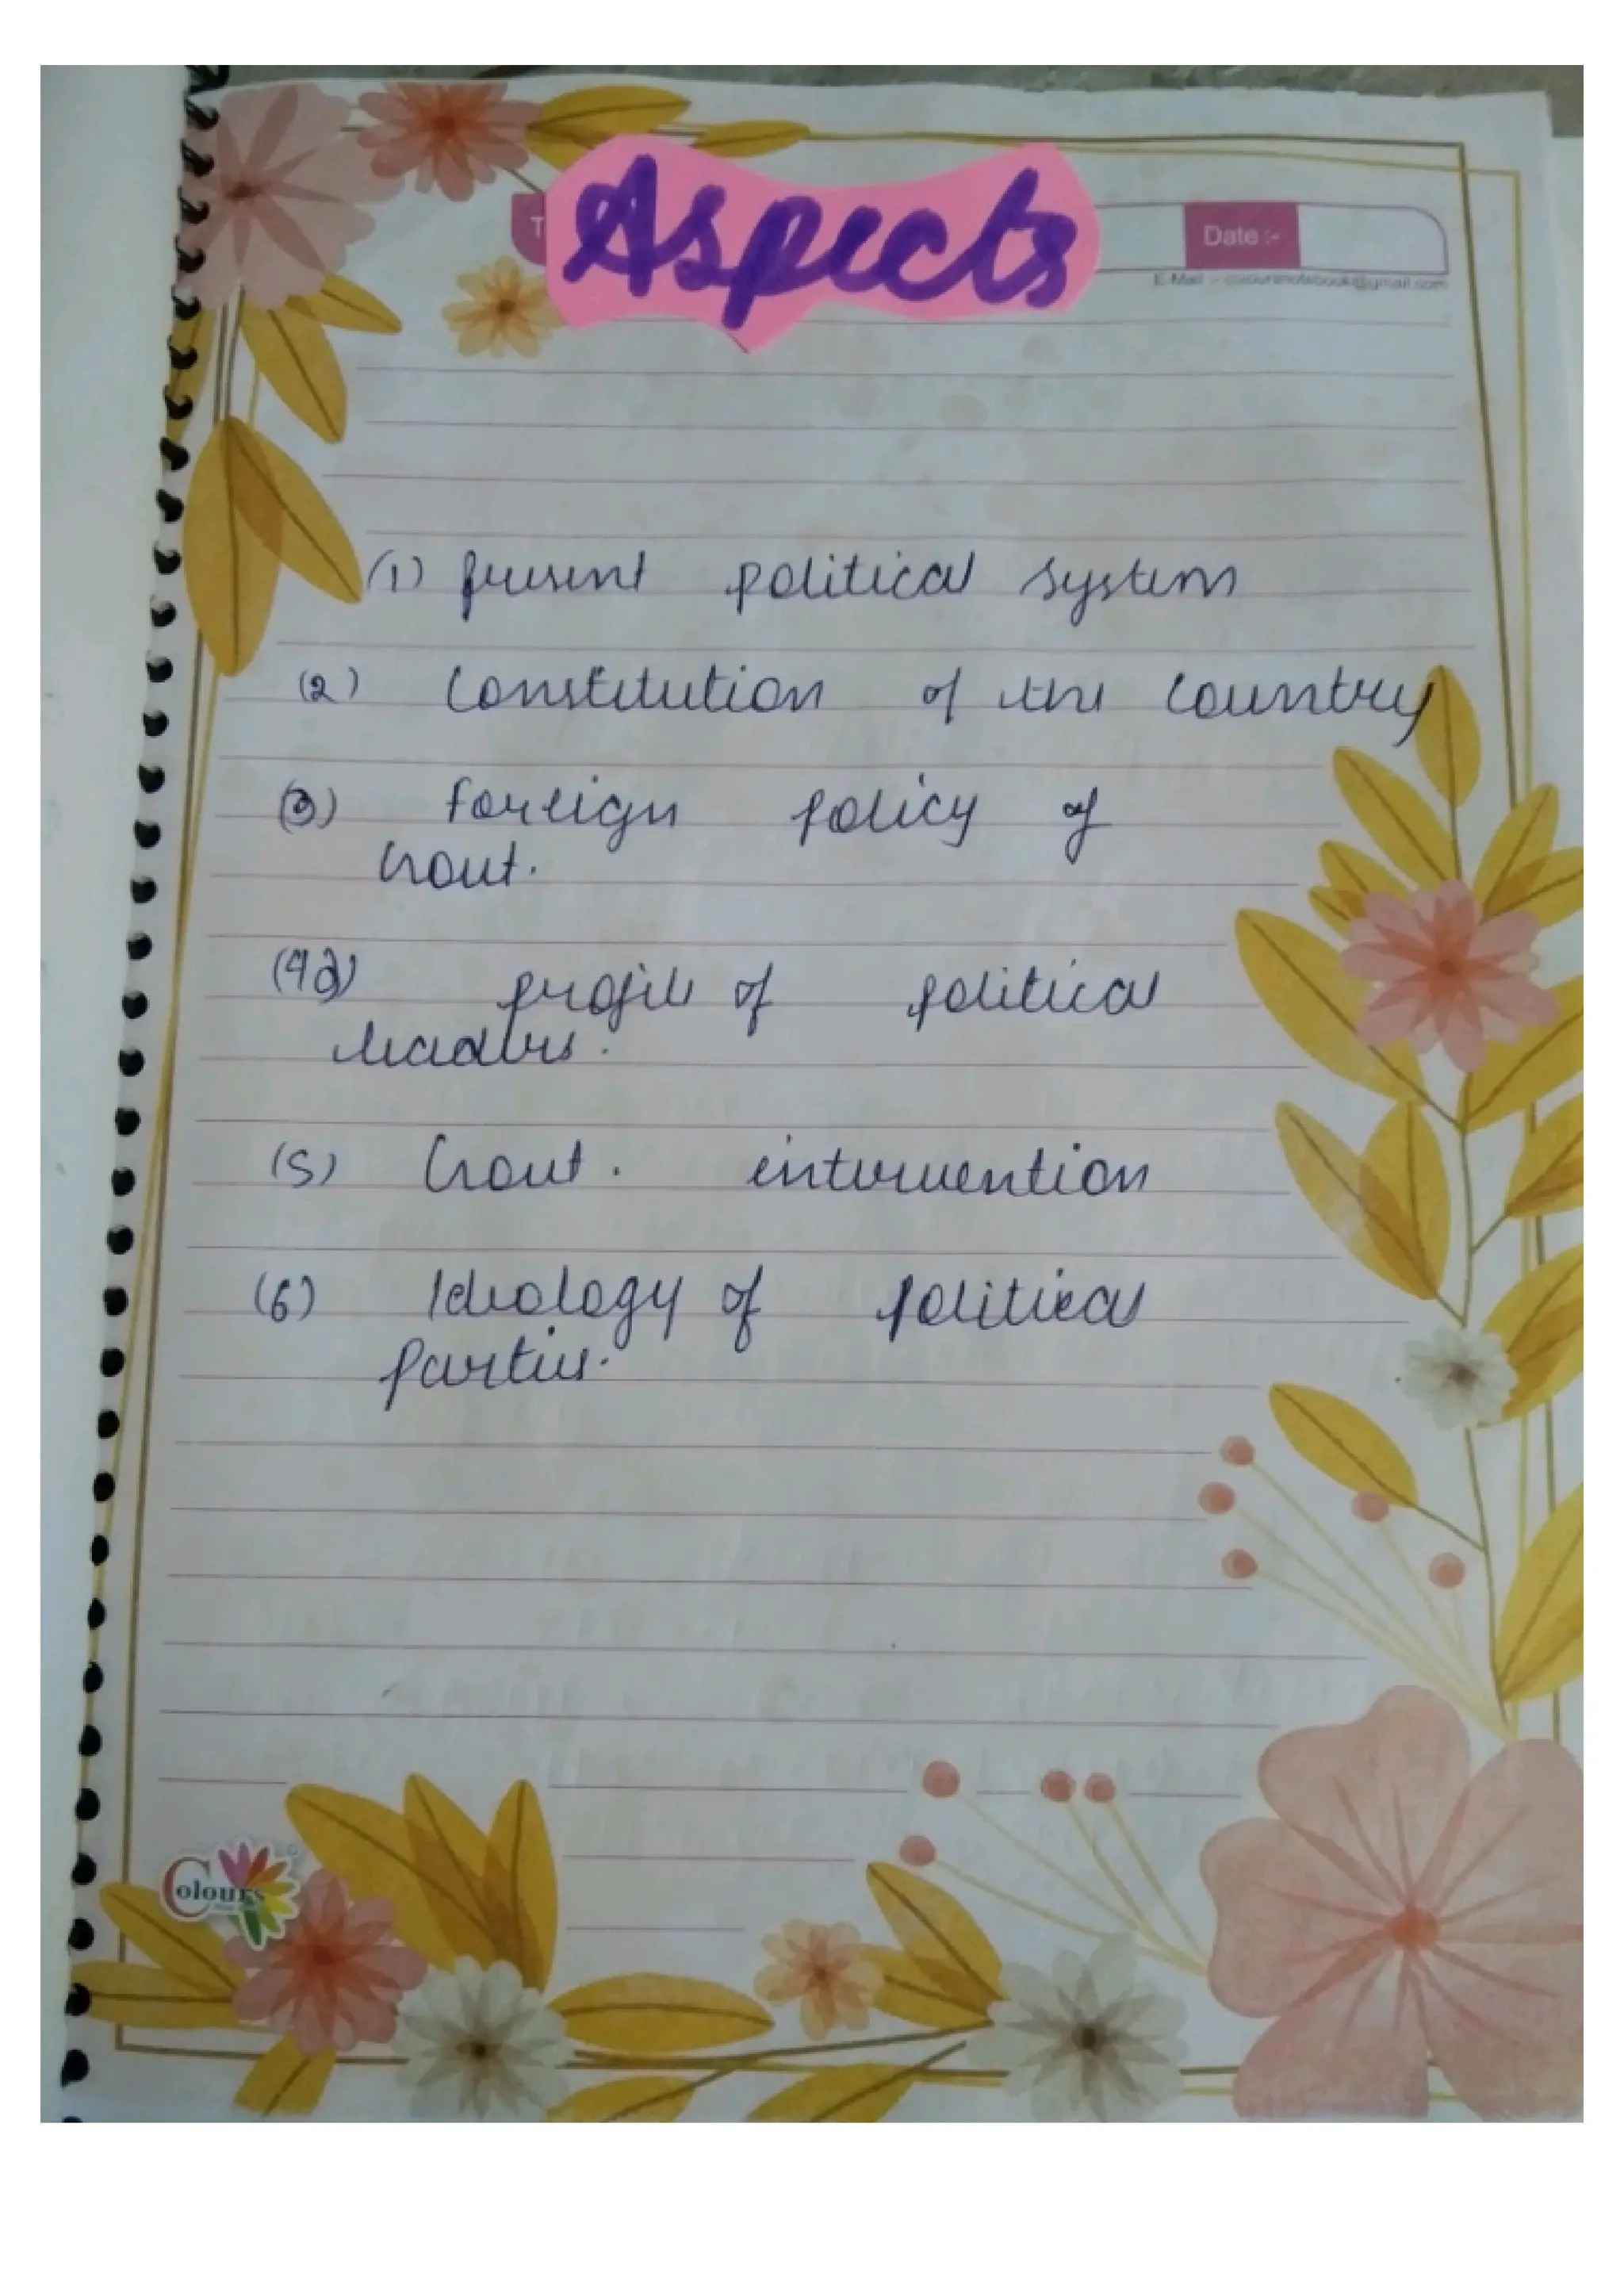 Aspects
Date :-
E-Mail :- coloursnotebook@gmail.com
(1) present political system
(2) Constitution of the country
(3) Foreign policy of
Govt.
(4) profile of political
leaders.
(5) Govt. intervention
(6) Ideology of political
parties.
Colours